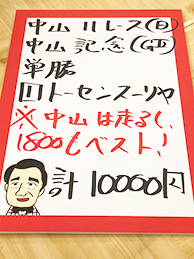 中山 11レース(日)
中山記念(GII)
単勝
11トーセンスーリヤ
※中山は走るし、
1800もベスト!
計 10000円